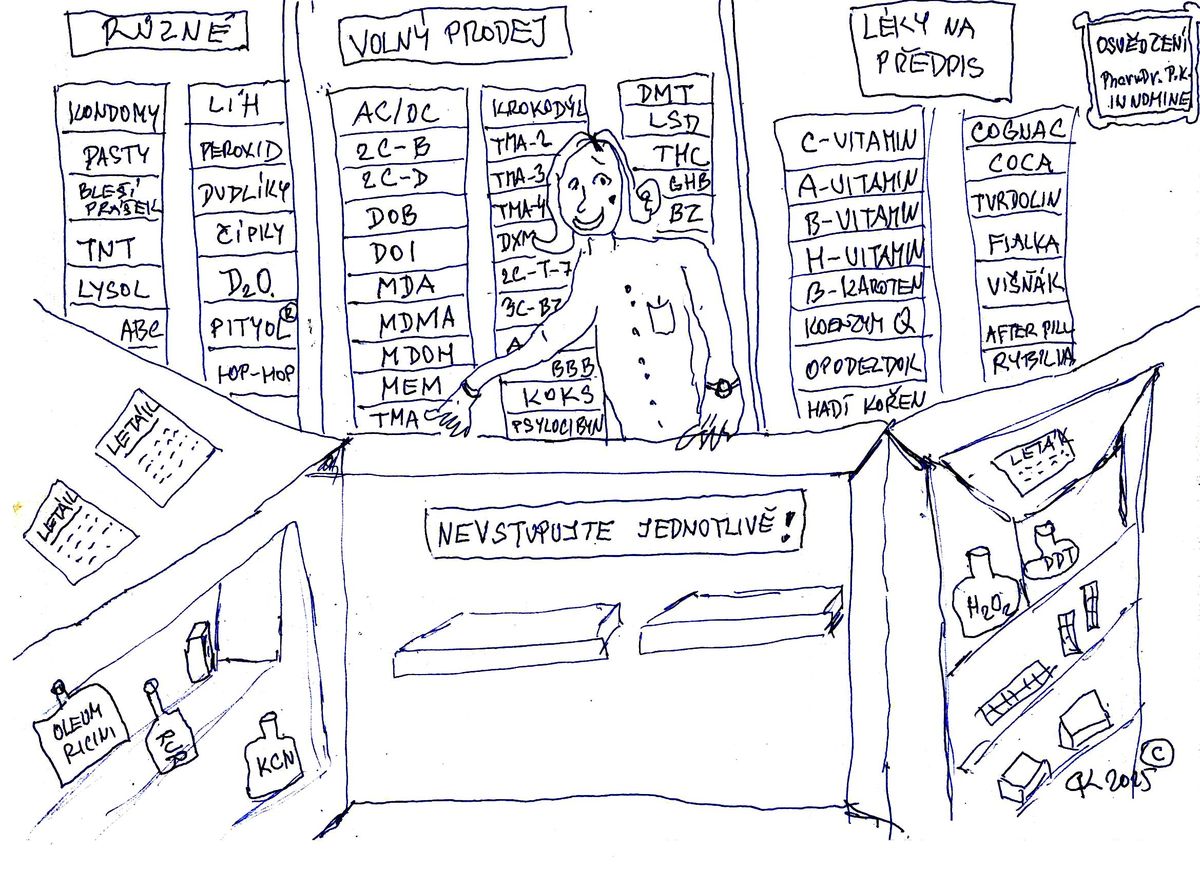 RŮZNÉ
VOLNÝ PRODEJ
LÉKY NA
PŘEDPIS
OSVĚDZENÍ
PharmDr. P.K.
IN NOMINE
KONDOMY
PASTY
BLEŠÍ
PRÁŠEK
TNT
LYSOL
ABC
LÍH
PEROXID
DUDLÍKY
ČÍPKY
D₂O
PITYOL®
HOP-HOP
AC/DC
2C-B
2C-D
DOB
DOI
MDA
MDMA
MDOH
MEM
TMA
KROKODÝL
TMA-2
TMA-3
TMA-4
DXM
2C-T-7
3C-BZ
A
BBB
KOKS
PSYLOCIBYN
DMT
LSD
THC
GHB
BZ
C-VITAMIN
A-VITAMIN
B-VITAMIN
H-VITAMIN
B-KAROTEN
KOENZYM Q
OPODELDOK
HADÍ KOŘEN
COGNAC
COCA
TVRDOLIN
FIALKA
VIŠŇÁK
AFTER PILL
RYBILKA
LETÁK
LETÁK
LETÁK
NEVSTUPUJTE JEDNOTLIVĚ!
OLEUM
RICINI
RUR
KCN
H₂O₂
DDT
©
PK 2025